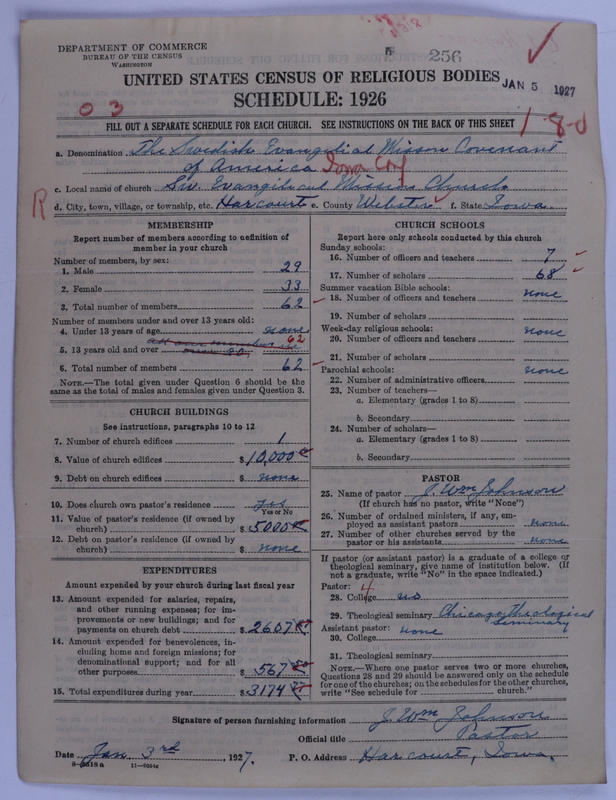 DEPARTMENT OF COMMERCE
BUREAU OF THE CENSUS
WASHINGTON
256
UNITED STATES CENSUS OF RELIGIOUS BODIES
JAN 5 1927
SCHEDULE: 1926
03
FILL OUT A SEPARATE SCHEDULE FOR EACH CHURCH. SEE INSTRUCTIONS ON THE BACK OF THIS SHEET
1 8-0
a. Denomination The Swedish Evangelical Mission Covenant
of America Iowa Conf
c. Local name of church Sw. Evangelical Mission Church
R
d. City, town, village, or township, etc. Harcourt e. County Webster f. State Iowa.
MEMBERSHIP
Report number of members according to definition of
member in your church
Number of members, by sex:
1. Male 29
2. Female 33
3. Total number of members 62
Number of members under and over 13 years old:
4. Under 13 years of age none
all our members are 62
5. 13 years old and over over
6. Total number of members 62
NOTE.—The total given under Question 6 should be the
same as the total of males and females given under Question 3.
CHURCH BUILDINGS
See instructions, paragraphs 10 to 12
7. Number of church edifices 1
8. Value of church edifices $10,000
9. Debt on church edifices $ none
10. Does church own pastor's residence yes
Yes or No
11. Value of pastor's residence (if owned by
church) $5000
12. Debt on pastor's residence (if owned by
church) $ none
EXPENDITURES
Amount expended by your church during last fiscal year
13. Amount expended for salaries, repairs,
and other running expenses; for im-
provements or new buildings; and for
payments on church debt $2607
14. Amount expended for benevolences, in-
cluding home and foreign missions; for
denominational support; and for all
other purposes $567
15. Total expenditures during year $3174
CHURCH SCHOOLS
Report here only schools conducted by this church
Sunday schools:
16. Number of officers and teachers 7
17. Number of scholars 68
Summer vacation Bible schools:
none
18. Number of officers and teachers
19. Number of scholars
Week-day religious schools:
none
20. Number of officers and teachers
21. Number of scholars
Parochial schools:
none
22. Number of administrative officers
23. Number of teachers—
a. Elementary (grades 1 to 8)
b. Secondary
24. Number of scholars—
a. Elementary (grades 1 to 8)
b. Secondary
PASTOR
25. Name of pastor J. Wm Johnson
(If church has no pastor, write "None")
26. Number of ordained ministers, if any, em-
ployed as assistant pastors none
27. Number of other churches served by the
pastor or his assistants none
If pastor (or assistant pastor) is a graduate of a college or
theological seminary, give name of institution below. (If
not a graduate, write "No" in the space indicated.)
Pastor: 4
28. College no
29. Theological seminary Chicago Theological
Seminary
Assistant pastor: none
30. College
31. Theological seminary
NOTE.—Where one pastor serves two or more churches,
Questions 28 and 29 should be answered only on the schedule
for one of the churches; on the schedules for the other churches,
write "See schedule for church."
Signature of person furnishing information J. Wm Johnson
Official title Pastor
Date Jan 3rd, 1927. P. O. Address Harcourt, Iowa.
8-5518a 11-9054